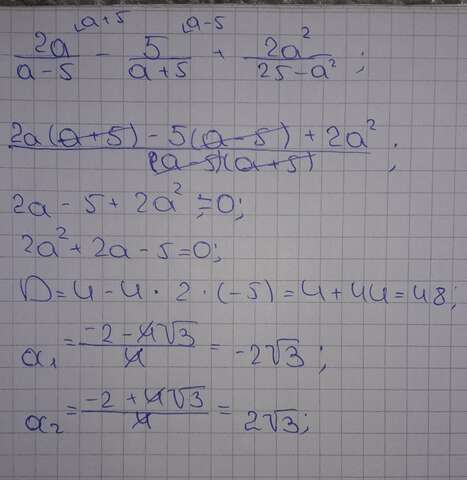 2a/(a-5) ⌞a+5 - 5/(a+5) ⌞a-5 + 2a²/(25-a²);
(2a(a+5) - 5(a-5) + 2a²)/((a-5)(a+5));
2a - 5 + 2a² = 0;
2a² + 2a - 5 = 0;
D = 4 - 4 · 2 · (-5) = 4 + 44 = 48;
a₁ = (-2 - 4√3)/4 = -2√3;
a₂ = (-2 + 4√3)/4 = 2√3;